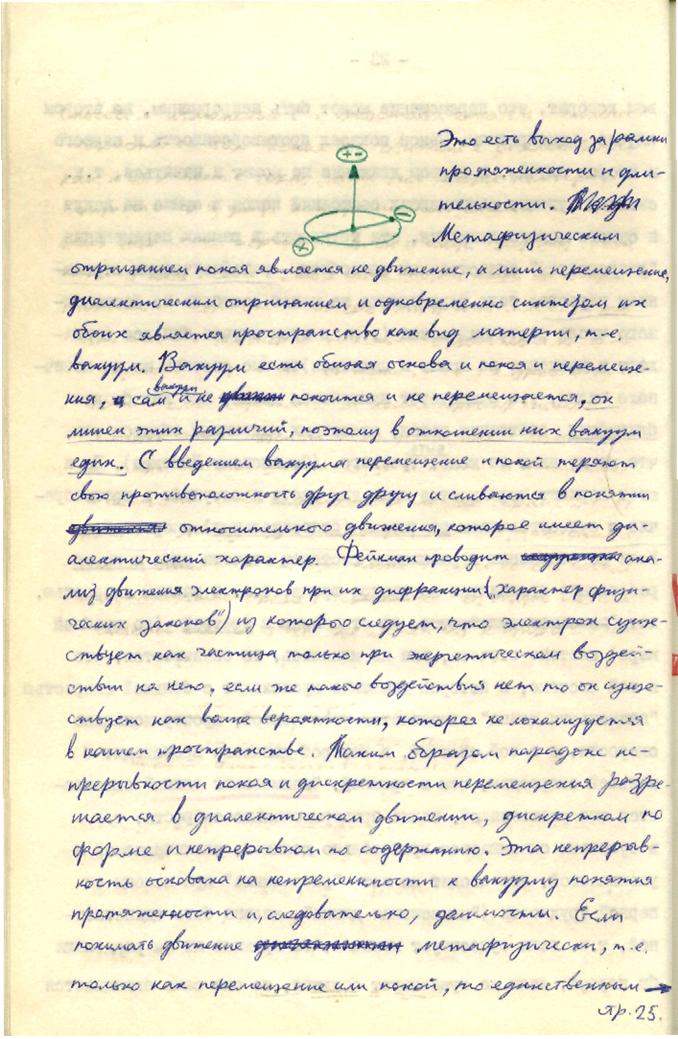 Это есть выход за рамки
протяженности и дли-
тельности.
Метафизическим
отрицанием покоя является не движение, а лишь перемещение,
диалектическим отрицанием и одновременно синтезом их
обоих является пространство как вид материи, т.е.
вакуум. Вакуум есть общая основа и покоя и перемеще-
ния, и сам вакуум и не покоится и не перемещается, он
лишен этих различий, поэтому в отношении них вакуум
един. С введением вакуума перемещение и покой теряют
свою противоположность друг другу и сливаются в понятии
относительного движения, которое имеет ди-
алектический характер. Фейнман проводит ана-
лиз движения электронов при их дифракции („характер физи-
ческих законов") из которого следует, что электрон суще-
ствует как частица только при энергетическом воздей-
ствии на него, если же такого воздействия нет то он суще-
ствует как волна вероятности, которая не локализуется
в нашем пространстве. Таким образом парадокс не-
прерывности покоя и дискретности перемещения разре-
шается в диалектическом движении, дискретном по
форме и непрерывном по содержанию. Эта непрерыв-
ность основана на неприменимости к вакууму понятия
протяженности и, следовательно, делимости. Если
понимать движение метафизически, т.е.
только как перемещение или покой, то единственным →
стр. 25.